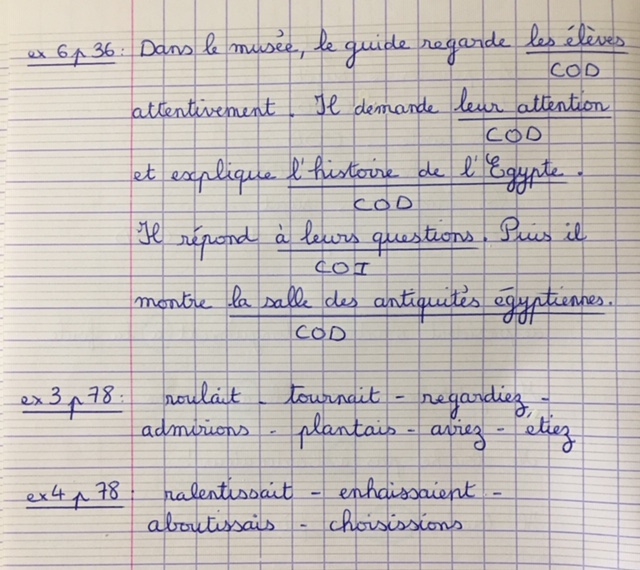 ex 6 p 36 : Dans le musée, le guide regarde les élèves
COD
attentivement. Il demande leur attention
COD
et explique l'histoire de l'Egypte.
COD
Il répond à leurs questions. Puis il
COI
montre la salle des antiquités égyptiennes.
COD
ex 3 p 78 : roulait - tournait - regardiez -
admirions - plantais - aviez - étiez
ex 4 p 78 ralentissait - enhaissaient -
aboutissais - choisissions